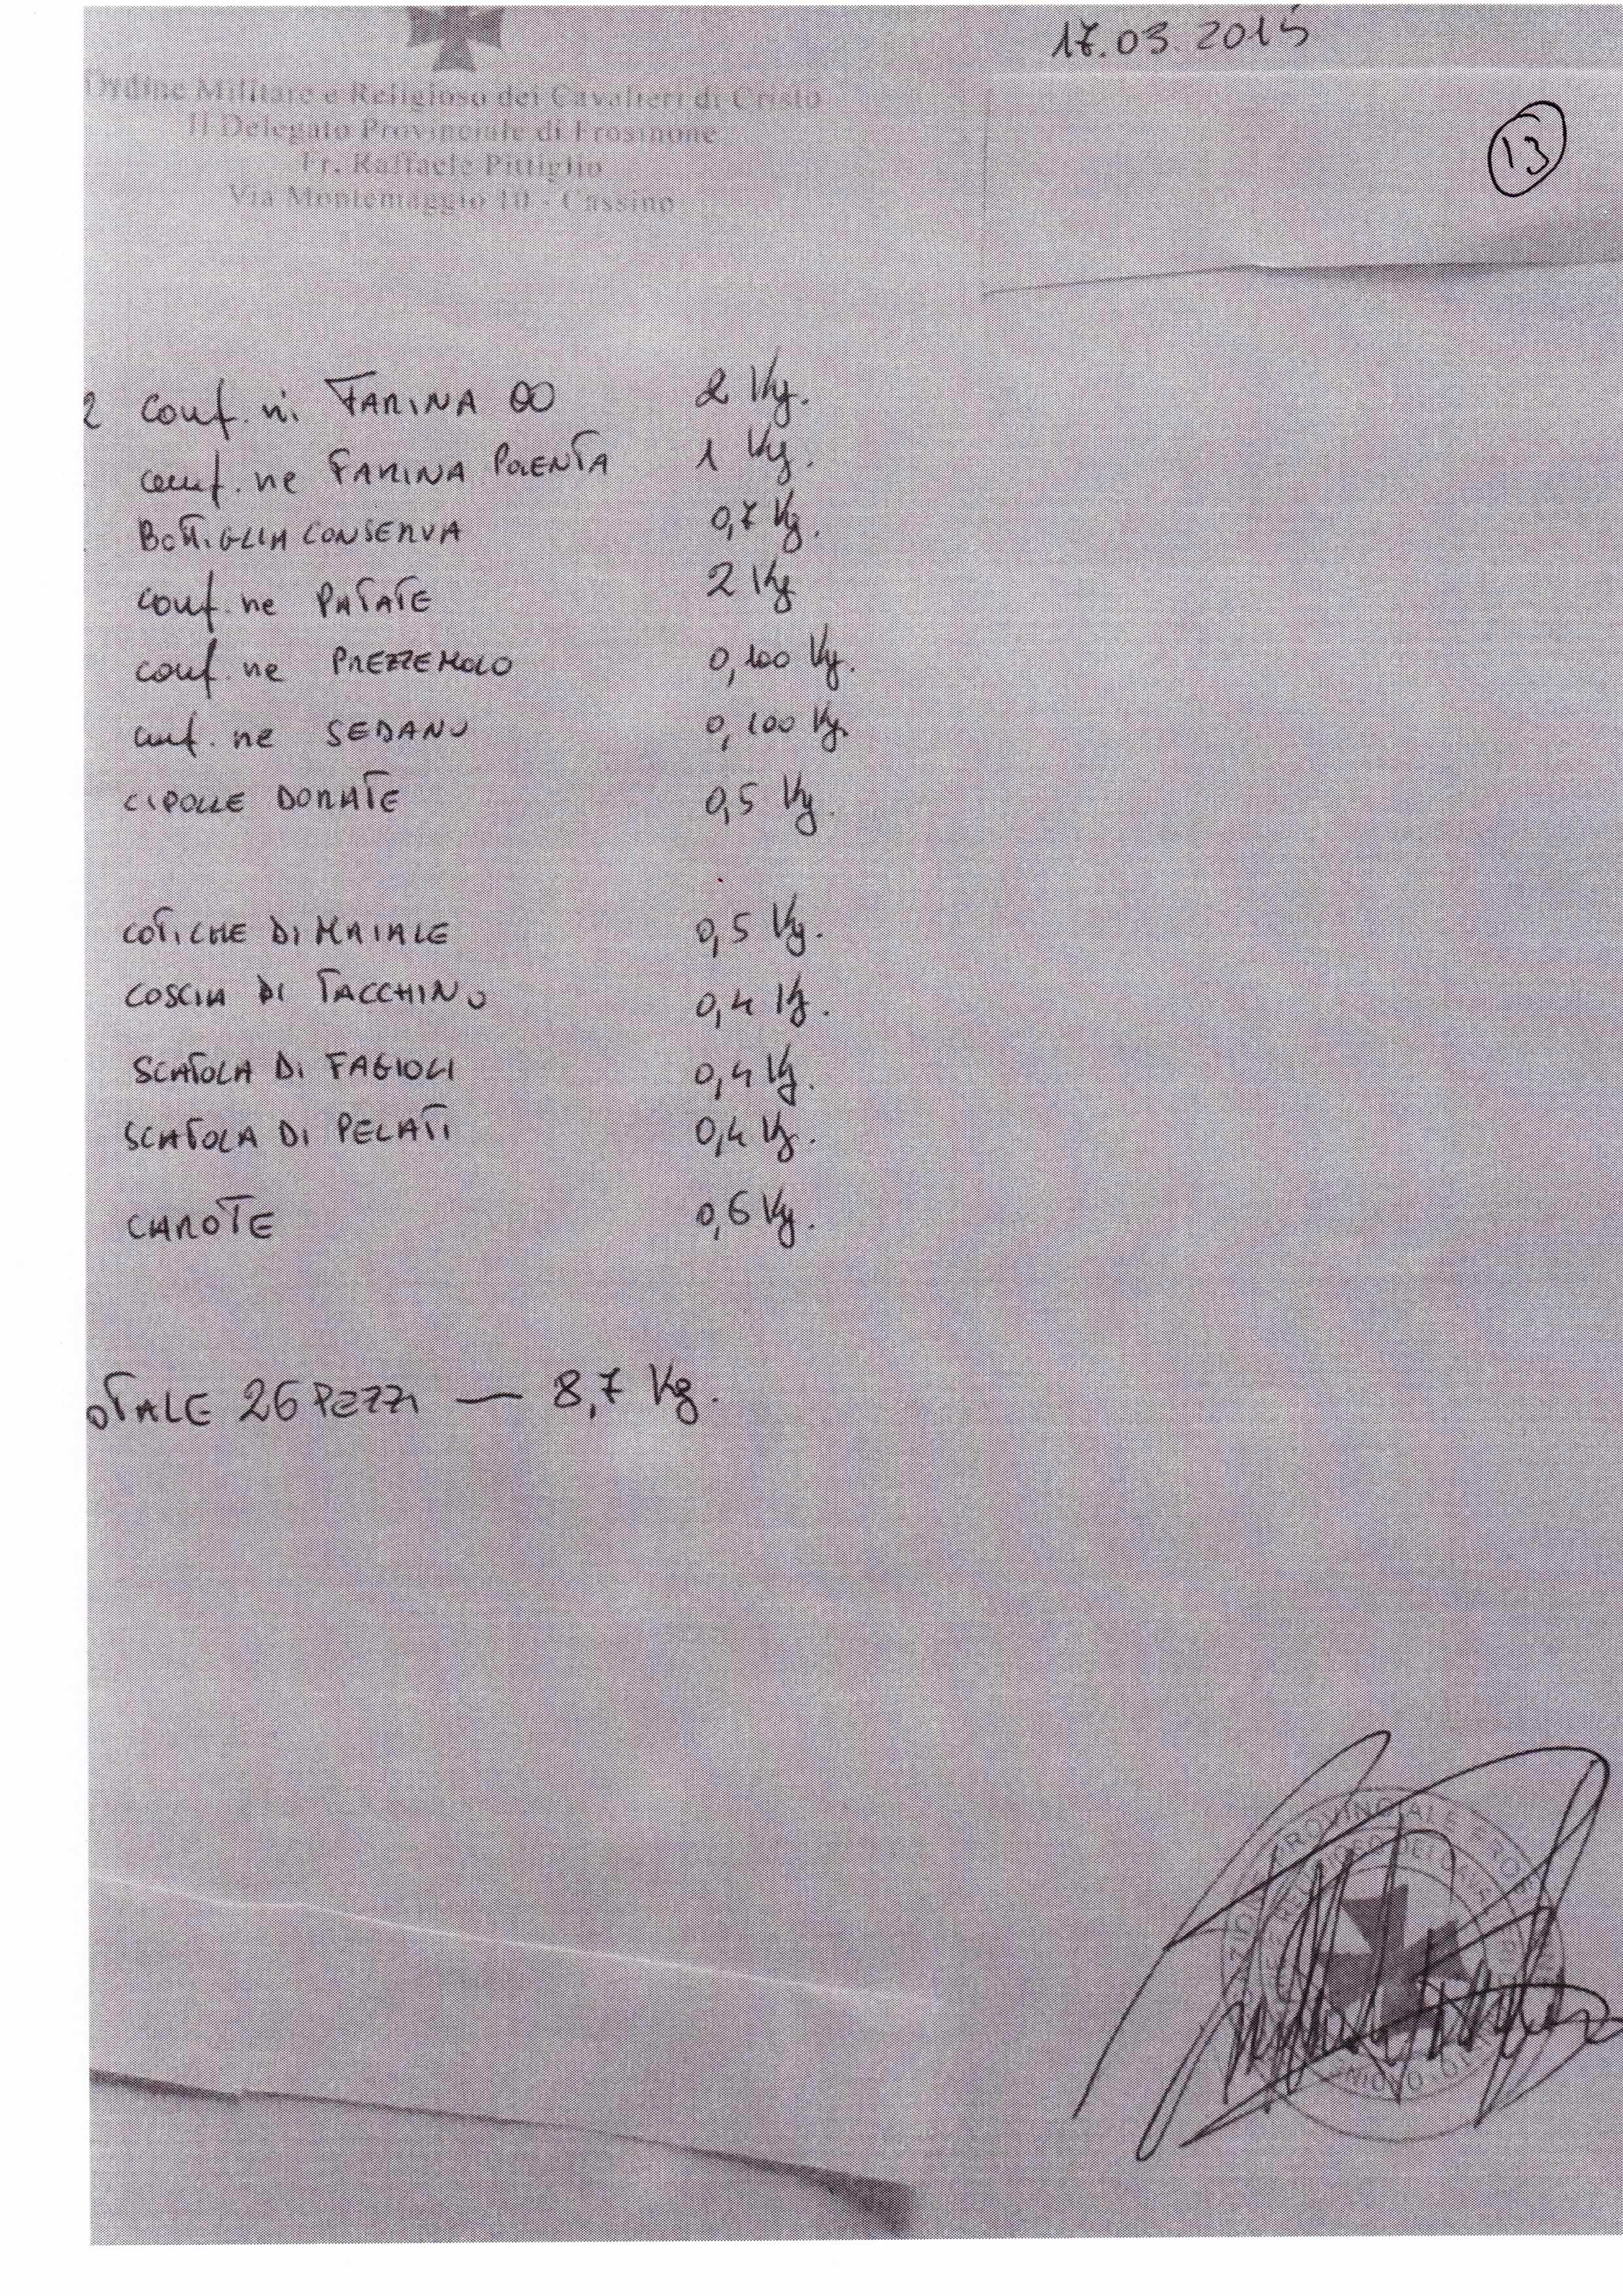 17.03.2015
13
Ordine Militare e Religioso dei Cavalieri di Cristo
Il Delegato Provinciale di Frosinone
Fr. Raffaele Pittiglio
Via Montemaggio 10 - Cassino
2 conf.ni FARINA 00 2 Kg.
conf.ne FARINA POLENTA 1 Kg.
BOTTIGLIA CONSERVA 0,7 Kg.
conf.ne PATATE 2 Kg
conf.ne PREZZEMOLO 0,100 Kg.
conf.ne SEDANO 0,100 Kg.
CIPOLLE DORATE 0,5 Kg.
COTICHE DI MAIALE 0,5 Kg.
COSCIA DI TACCHINO 0,4 Kg.
SCATOLA DI FAGIOLI 0,4 Kg.
SCATOLA DI PELATI 0,4 Kg.
CAROTE 0,6 Kg.
OTALE 26 PEZZI — 8,7 Kg.
PROVINCIALE